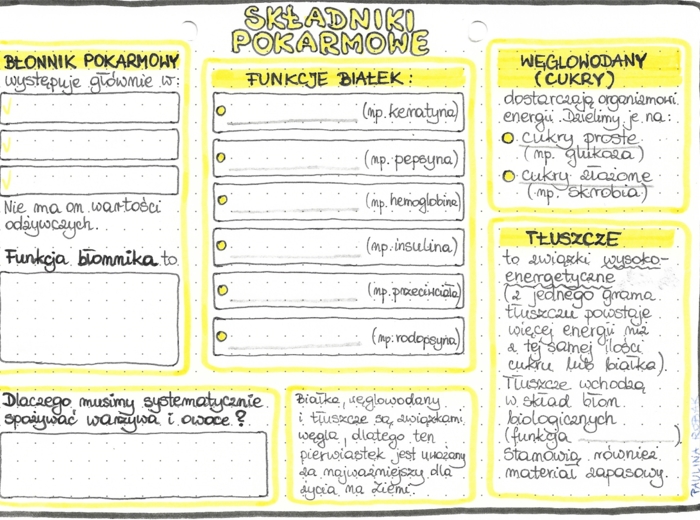 SKŁADNIKI
POKARMOWE
BŁONNIK POKARMOWY
występuje głównie w:
Nie ma on wartości
odżywczych.
Funkcja błonnika to
FUNKCJE BIAŁEK:
(np. keratyna)
(np. pepsyna)
(np. hemoglobina)
(np. insulina)
(np. przeciwciała)
(np. rodopsyna)
WĘGLOWODANY
(CUKRY)
dostarczają organizmowi
energii. Dzielimy je na:
cukry proste
(np. glukoza)
cukry złożone
(np. skrobia)
TŁUSZCZE
to związki wysoko-
energetyczne
(z jednego grama
tłuszczu powstaje
więcej energii niż
z tej samej ilości
cukru lub białka).
Tłuszcze wchodzą
w skład błon
biologicznych
(funkcja __________).
Stanowią również
materiał zapasowy.
Dlaczego musimy systematycznie
spożywać warzywa i owoce?
Białka, węglowodany
i tłuszcze są związkami
węgla, dlatego ten
pierwiastek jest uważany
za najważniejszy dla
życia na Ziemi.